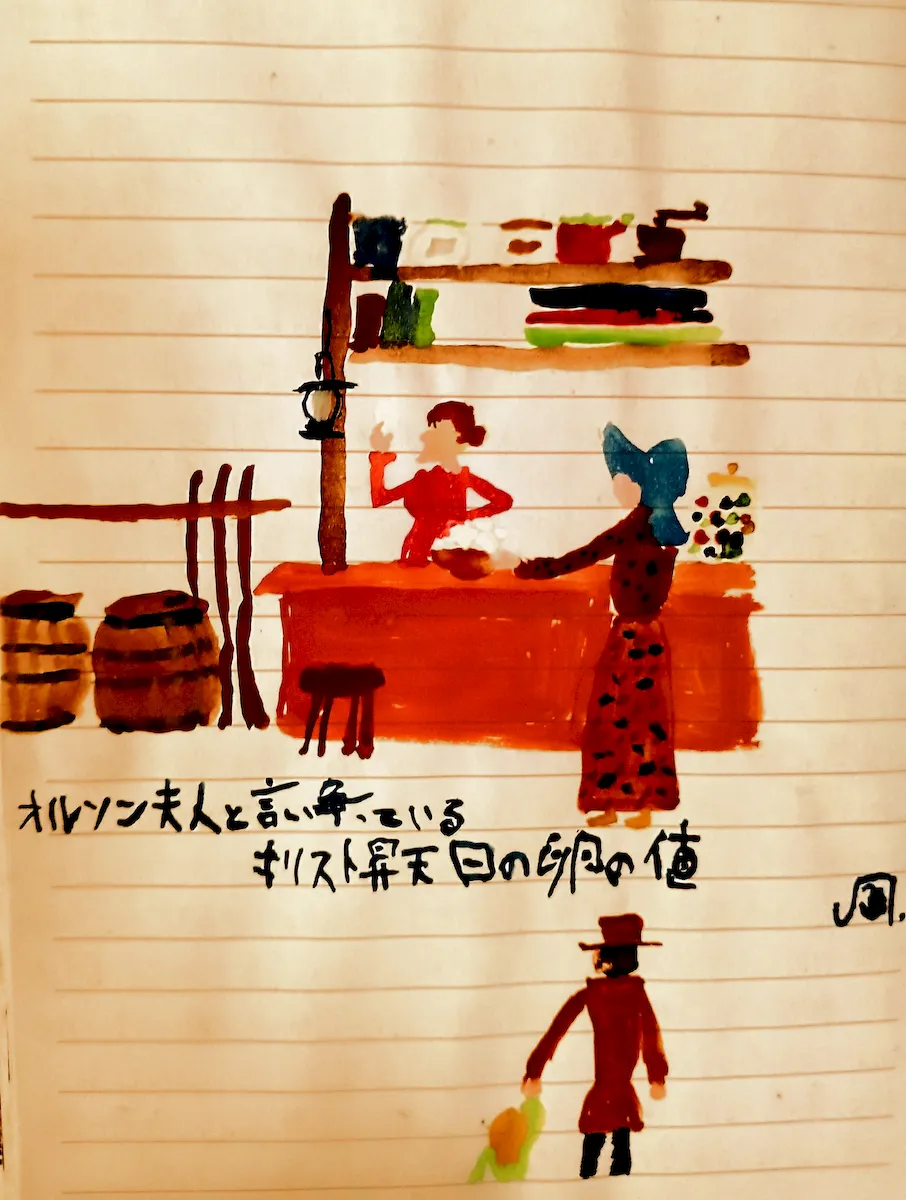 オルソン夫人と言い争っている
キリスト昇天日の卵の値